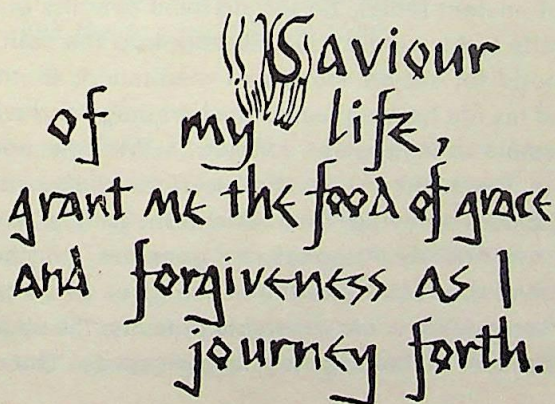 Saviour
of my life,
grant me the food of grace
and forgiveness as I
journey forth.